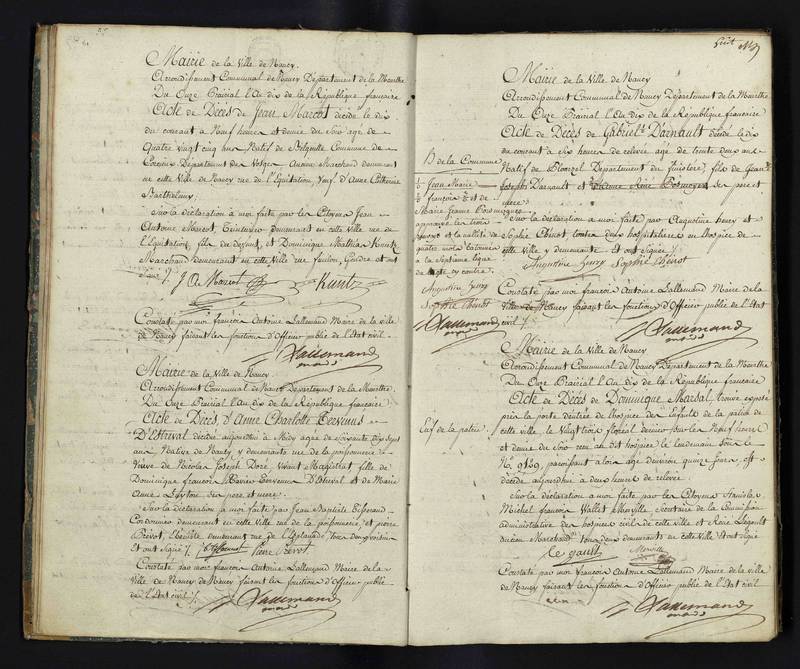 Mairie de la Ville de Nancy.
Arrondissement Communal de Nancy Département de la Meurthe
Du Onze Prairial l'An dix de la République française
Acte de Décès de Jean Marcot décédé le dix
du courant à Neuf heures et demie du Soir age de
Quatre vingt cinq ans Natif de Commune de
Département des Vosges Ancien Marchand demeurant
en cette Ville de Nancy rue de l'Equitation, Veuf d'Anne Catherine
Barthelemy.
Sur la déclaration à moi faite par les Citoyens Jean
Antoine Marcot, Teinturier demeurant en cette ville rue de
l'Equitation, fils du défunt, et Dominique Mathias Kuntz
Marchand demeurant en cette Ville rue Gendre et ont
Signé /.
J A Marcot Kuntz
Constaté par moi françois Antoine Lallemand Maire de la ville
de Nancy faisant les fonctions d'Officier public de l'Etat civil
Lallemand
Mairie de la Ville de Nancy
Arrondissement Communal de Nancy Département de la Meurthe
Du Onze Prairial l'An dix de la République française
Acte de Décès, d'Anne Charlotte Tervenus
D'Estrival décédée aujourd'hui à Midy agée de soixante dix sept
ans Native de Nancy, y demeurante rue de la poissonnerie
Veuve de Nicolas Joseph Doré Vivant Magistrat fille de
Dominique françois Xavier Tervenus D'Estrival et de Marie
Anne ses pere et mere.
Sur la déclaration à moi faite par Jean Baptiste
Cordonnier demeurant en cette Ville rue de la poissonnerie, et pierre
Prévot, demeurant rue de l'Esplanade tous deux voisins
Et ont Signé /. Pierre Prevot
Constaté par moi françois Antoine Lallemand Maire de la
Ville de Nancy de Nancy faisant les fonctions d'Officier public
de l'Etat civil /.
Lallemand
huit
Mairie de la Ville de Nancy
Arrondissement Communal de Nancy Département de la Meurthe
Du Onze Prairial l'An dix de la République française
Acte de Décès de Gabriel D'arnault décédé le dix
du courant à Six heures de relevée agé de trente deux ans
Natif de Département du finistère, fils de Jean
Joseph D'arnault et ses pere et
mere
Sur la déclaration à moi faite par Augustine henry et
Sophie Chénot toutes deux hospitalières en l'hospice de
cette Ville y demeurante Et ont Signée /.
Augustine henry Sophie Chénot
Constaté par moi françois Antoine Lallemand Maire de la
Ville de Nancy faisant les fonctions d'Officier public de l'Etat
civil /.
Lallemand
B de la Commune
Jean Marie
françois et de
Marie Jeanne
approuvé les trois
renvoi et la nullité de
quatre mots
à la Septieme ligne
de l'acte cy contre
Augustine henry
Sophie Chénot
Lallemand
Mairie de la Ville de Nancy
Arrondissement Communal de Nancy Département de la Meurthe
Du Onze Prairial l'An dix de la République française
Acte de Décès de Dominique Morsal, trouvé exposé
près la porte d'entrée de l'hospice des Enfants de la patrie de
cette ville, le Vingt trois floréal dernier sur les Neuf heures
et demie du Soir audit hospice le lendemain sous le
N.º 9159, paroissant alors agé d'environ quinze jours,
décédé aujourd'hui à deux heures de relevée
Sur la déclaration à moi faite par les Citoyens Stanislas
Michel françois Secretaire de la Commission
administrative des hospices civils de cette ville et René Legault
ancien Marchand tous deux demeurant en cette Ville et ont Signé
Le gault
Constaté par moi françois Antoine Lallemand Maire de la Ville
de Nancy faisant les fonctions d'Officier public de l'Etat civil
Lallemand
Enf. de la patrie